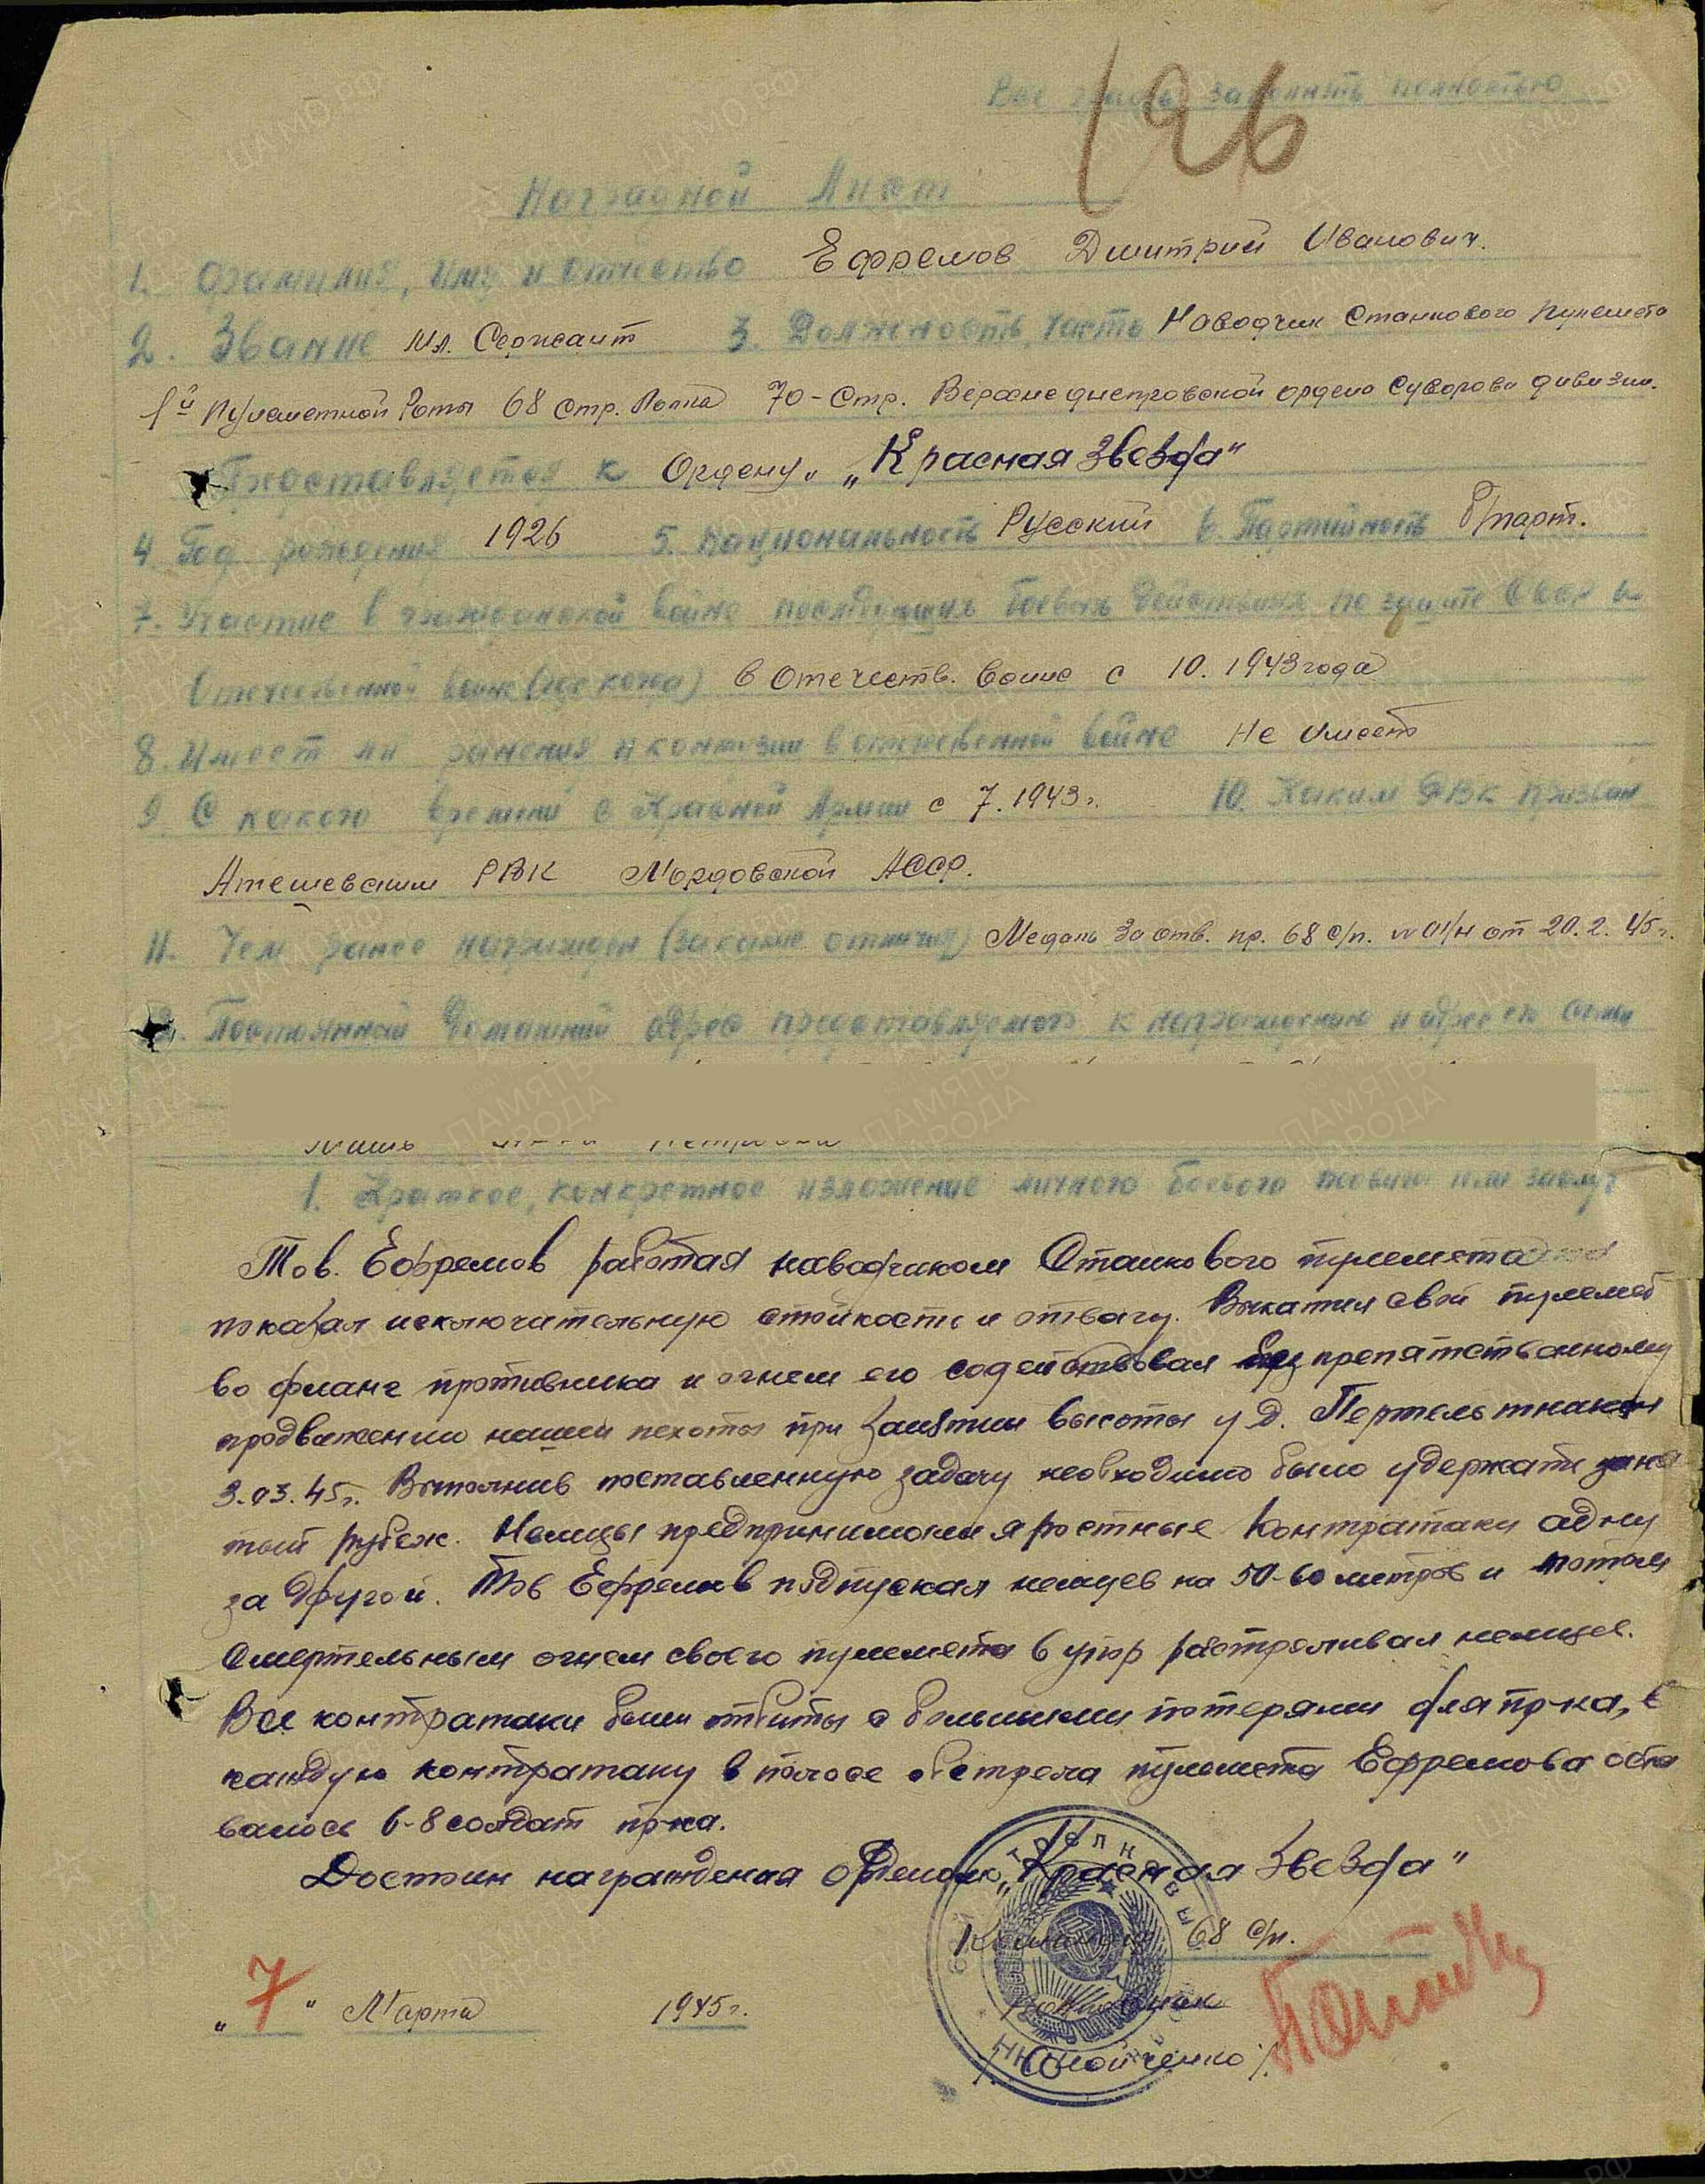 Все графы заполнять полностью
196
Наградной Лист
1. Фамилия, имя и отчество Ефремов Дмитрий Иванович.
2. Звание Мл. Сержант 3. Должность, часть Наводчик Станкового пулемета
1й Пулеметной Роты 68 стр. Полка 70-Стр. Верхнеднепровской ордена Суворова дивизии.
Представляется к Ордену „Красная Звезда"
4 Год рождения 1926 5. Национальность Русский 6. Партийность б/парт.
7. Участие в гражданской войне последующих боевых действиях по защите СССР и
Отечественной войне (где когда) в Отечеств. войне с 10. 1943 года
8. Имеет ли ранения и контузии в отечественной войне Не имеет
9 С какого времени в Красной Армии с 7. 1943 г. 10. Каким РВК призван
Атешевским РВК Мордовской АССР.
11. Чем ранее награжден (за какие отличия) Медаль За отв. пр. 68 с/п. № 01/н от 20. 2. 45 г.
12. Постоянный домашний адрес представляемого к награждению и адрес его семьи
1. Краткое, конкретное изложение личного боевого подвига или заслуг
Тов. Ефремов работая наводчиком Станкового пулемета
показал исключительную стойкость и отвагу. Выкатил свой пулемет
во фланг противника и огнем его содействовал безпрепятственному
продвижению нашей пехоты при занятии высоты у д. Пертельтникен
3.03.45г. Выполнив поставленную задачу необходимо было удержать заня
тый рубеж. Немцы предпринимали яростные контратаки одну
за другой. Тов Ефремов подпускал немцев на 50-60 метров и потом
смертельным огнем своего пулемета в упор расстреливал немцев.
Все контратаки были отбиты с большими потерями для пр-ка, в
каждую контратаку в полосе обстрела пулемета Ефремова оста
валось 6-8 солдат пр-ка.
Достоин награждения орденом „Красная Звезда"
Командир 68 с/п.
„7" Марта 1945 г.